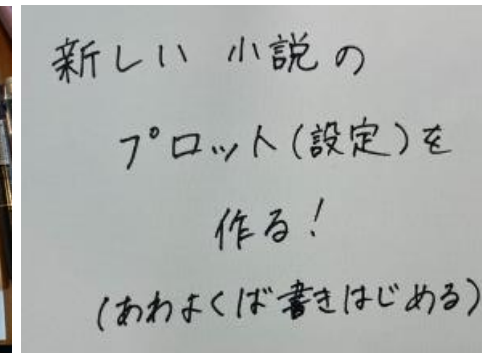 新しい小説の
プロット(設定)を
作る!
(あわよくば書きはじめる)